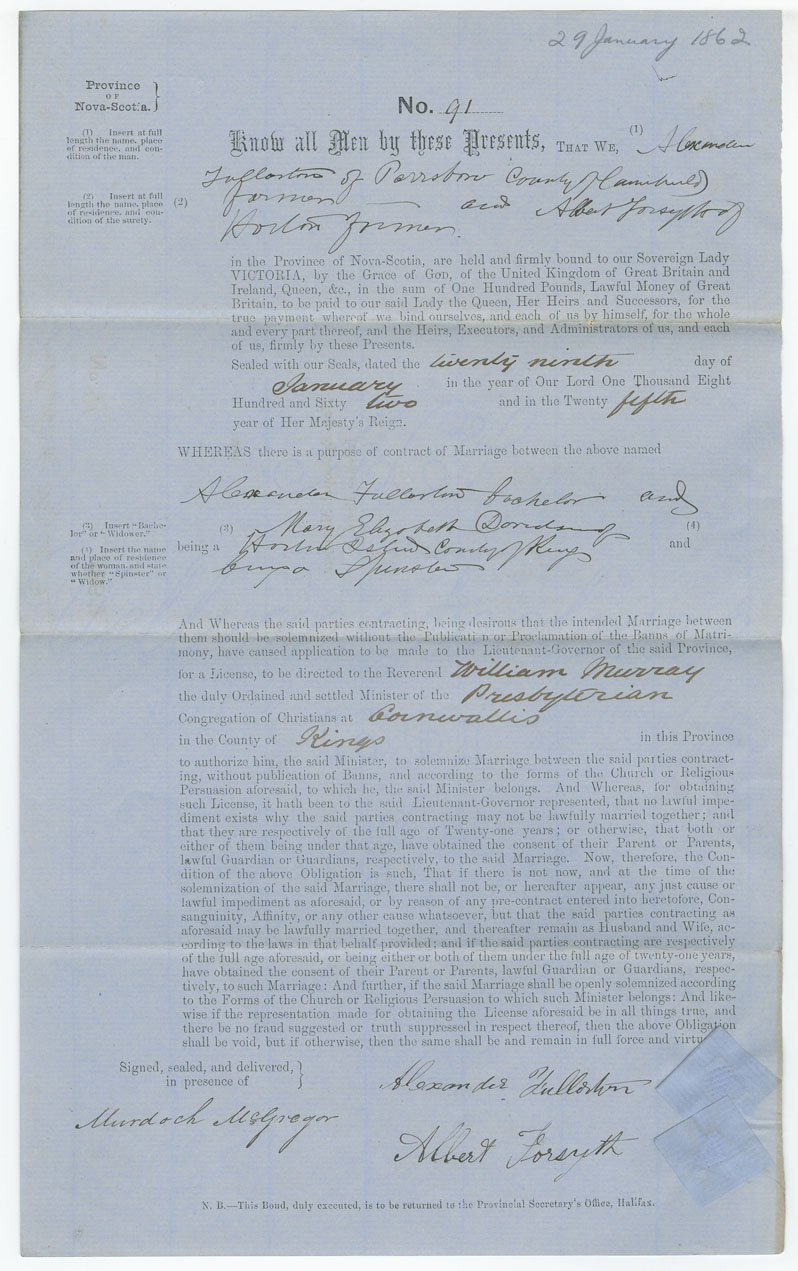 29 January 1862
Province
OF
Nova-Scotia.
No. 91
(1) Insert at full
length the name, place
of residence, and con-
dition of the man.
Know all Men by these Presents, THAT WE, (1) Alexander
Fullerton of Parrsboro County of Cumberland
(2) Insert at full
length the name, place
of residence, and con-
dition of the surety.
(2) Farmer and Albert Forsyth of
Horton Farmer.
in the Province of Nova-Scotia, are held and firmly bound to our Sovereign Lady
VICTORIA, by the Grace of GOD, of the United Kingdom of Great Britain and
Ireland, Queen, &c., in the sum of One Hundred Pounds, Lawful Money of Great
Britain, to be paid to our said Lady the Queen, Her Heirs and Successors, for the
true payment whereof we bind ourselves, and each of us by himself, for the whole
and every part thereof, and the Heirs, Executors, and Administrators of us, and each
of us, firmly by these Presents.
Sealed with our Seals, dated the twenty ninth day of
January in the year of Our Lord One Thousand Eight
Hundred and Sixty two and in the Twenty fifth
year of Her Majesty's Reign.
WHEREAS there is a purpose of contract of Marriage between the above named
Alexander Fullerton bachelor and
(3) Insert "Bache-
lor" or "Widower."
(3) Mary Elizabeth Davidson of (4)
(4) Insert the name
and place of residence
of the woman, and state
whether "Spinster" or
"Widow."
being a Horton County of Kings and
Spinster
And Whereas the said parties contracting, being desirous that the intended Marriage between
them should be solemnized without the Publicati n or Proclamation of the Banns of Matri-
mony, have caused application to be made to the Lieutenant-Governor of the said Province,
for a License, to be directed to the Reverend William Murray
the duly Ordained and settled Minister of the Presbyterian
Congregation of Christians at Cornwallis
in the County of Kings in this Province
to authorize him, the said Minister, to solemnize Marriage between the said parties contract-
ing, without publication of Banns, and according to the forms of the Church or Religious
Persuasion aforesaid, to which he, the said Minister belongs. And Whereas, for obtaining
such License, it hath been to the said Lieutenant-Governor represented, that no lawful impe-
diment exists why the said parties contracting may not be lawfully married together; and
that they are respectively of the full age of Twenty-one years; or otherwise, that both or
either of them being under that age, have obtained the consent of their Parent or Parents,
lawful Guardian or Guardians, respectively, to the said Marriage. Now, therefore, the Con-
dition of the above Obligation is such, That if there is not now, and at the time of the
solemnization of the said Marriage, there shall not be, or hereafter appear, any just cause or
lawful impediment as aforesaid, or by reason of any pre-contract entered into heretofore, Con-
sanguinity, Affinity, or any other cause whatsoever, but that the said parties contracting as
aforesaid may be lawfully married together, and thereafter remain as Husband and Wife, ac-
cording to the laws in that behalf provided; and if the said parties contracting are respectively
of the full age aforesaid, or being either or both of them under the full age of twenty-one years,
have obtained the consent of their Parent or Parents, lawful Guardian or Guardians, respec-
tively, to such Marriage: And further, if the said Marriage shall be openly solemnized according
to the Forms of the Church or Religious Persuasion to which such Minister belongs: And like-
wise if the representation made for obtaining the License aforesaid be in all things true, and
there be no fraud suggested or truth suppressed in respect thereof, then the above Obligation
shall be void, but if otherwise, then the same shall be and remain in full force and virtue
Signed, sealed, and delivered,
in presence of
Alexander Fullerton
Murdoch McGregor
Albert Forsyth
N. B.—This Bond, duly executed, is to be returned to the Provincial Secretary's Office, Halifax.